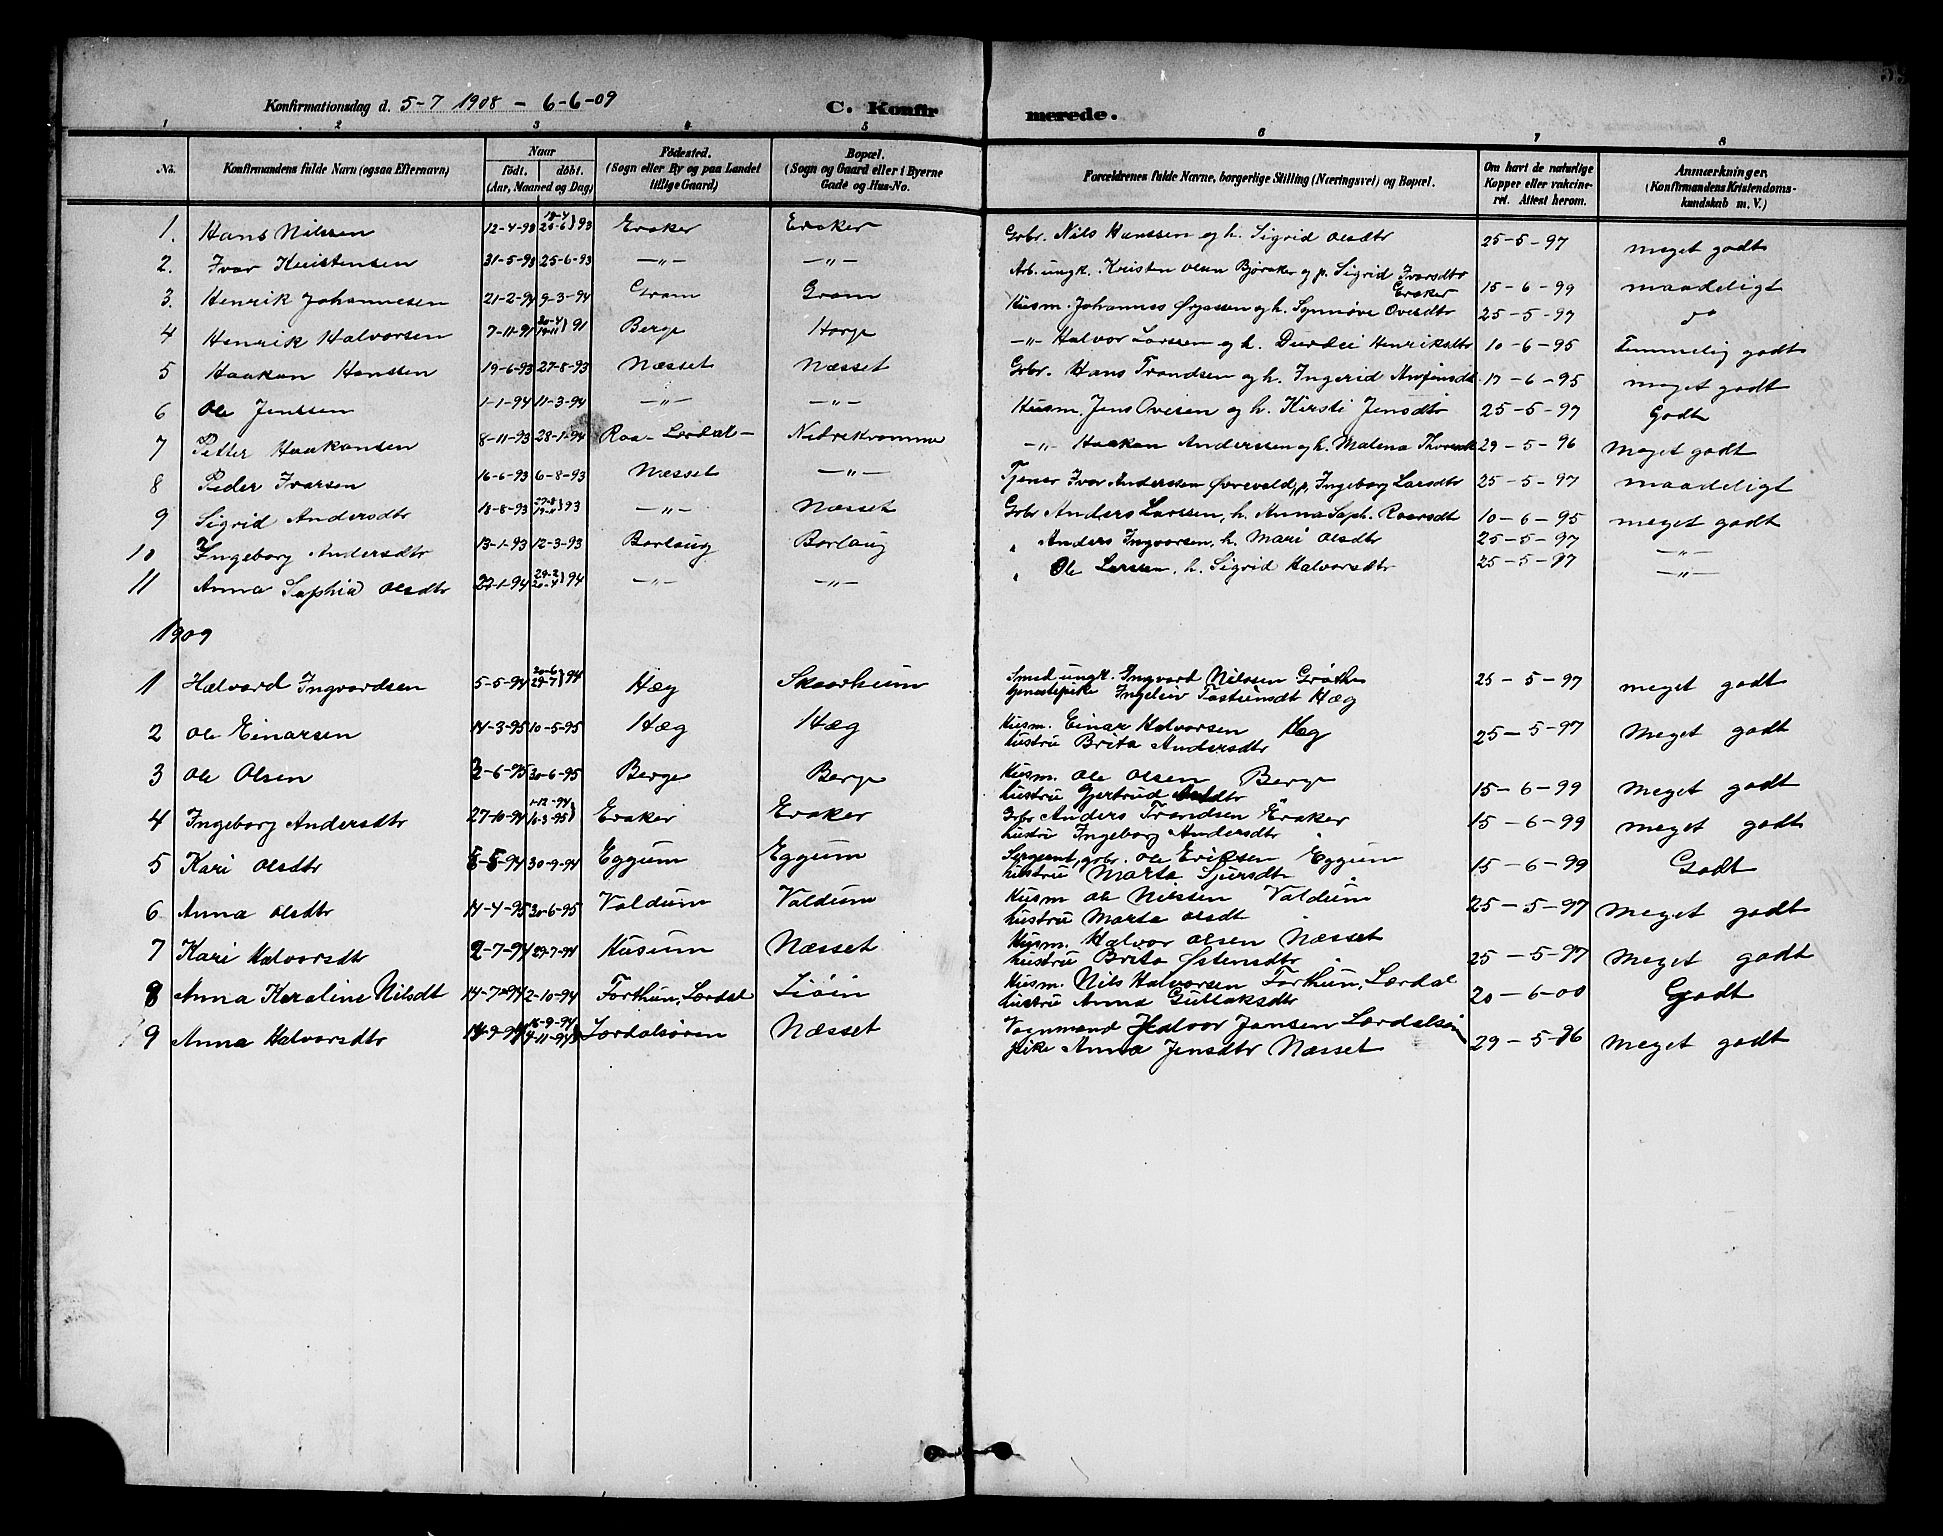 Konfirmationsdag d. 5-7 1908 - 6-6-09 C. Konfirmerede.
1 2 3 4 5 6 7 8
No. Konfirmandens fulde Navn (ogsaa Efternavn) Naar født. døbt. (Aar, Maaned og Dag) Fødested. (Sogn eller By og paa Landet tillige Gaard) Bopæl. (Sogn og Gaard eller i Byerne Gade og Hus-No. Forældrenes fulde Navne, borgerlige Stilling (Næringsvei) og Bopæl. Om havt de naturlige Kopper eller vakcineret. Attest herom. Anmærkninger. (Konfirmandens Kristendomskundskab m. V.)
1. Hans Nilssen 12-4-93 20-6 } 93 Eraker Eraker Grbr. Nils Hanssen og h. Sigrid Olsdtr 25-5-97 meget godt
2. Ivar Kristensen 31-5-93 25-6-93 —"— —"— Arb. ungk. Kristen Olsen Bjøraker og p. Sigrid Ivarsdtr Eraker 15-6-99 maadeligt
3. Henrik Johannesen 21-2-94 9-3-94 Gram Gram Husm. Johannes og h. Synnøve Ovesdtr 25-5-97 do
4 Henrik Halvorsen 7-11-91 } 91 Berge Horge —"— Halvor Larssen og h. Durdei Henriksdtr 10-6-95 Temmelig godt
5 Haakon Hanssen 19-6-93 27-8-93 Næsset Næsset Grbr. Hans Trondsen og h. Ingerid Arnfinsdt 17-6-95 meget godt
6 Ole Jenssen 1-1-94 11-3-94 —"— —"— Husm. Jens Ovesen og h. Kirsti Jensdtr 25-5-97 Godt
7 Petter Haakonsen 8-11-93 28-1-94 Raa - Lærdal - Nedrekvamme —"— Haakon Anderssen og h. Malena 29-5-96 Meget godt
8 Peder Ivarsen 16-6-93 6-8-93 Næsset —"— Tjener Ivar Anderssen p. Ingeborg Larsdtr 25-5-97 maadeligt
9 Sigrid Andersdtr 18-8-93 27-8 } 93 —"— Næsset Grbr Anders Larssen, h. Anna Soph. Roarsdt 10-6-95 meget godt
10 Ingeborg Andersdtr 13-1-93 12-3-93 Borlaug Borlaug " Anders Ingvorsen, h. Mari Olsdtr 25-5-97 —"—
11 Anna Sophia Olsdtr 22-1-94 } 94 —"— —"— " Ole Larssen, h. Sigrid Halvorsdtr 25-5-97 —"—
1909
1 Halvard Ingvardsen 5-5-94 20-6 29-7 } 94 Hæg Skaarheim Smed ungk. Ingvard Nilssen
Ingeleiv Tosteinsdt Hæg 25-5-97 meget godt
2 Ole Einarsen 14-3-95 10-5-95 Hæg Hæg Husm. Einar Halvorsen Hæg
hustru Brita Andersdtr 25-5-97 Meget godt
3 Ole Olsen 2-6-95 30-6-95 Berge Berge Husm. Ole Olsen Berge
hustru Gjertrud 15-6-99 Meget godt
4 Ingeborg Andersdtr 27-10-94 1-12-94 16-3-95 } Eraker Eraker Grbr Anders Trondsen Eraker
hustru Ingeborg Andersdtr 15-6-99 Meget godt
5 Kari Olsdtr 8-8-94 30-9-94 Eggum Eggum Sergeant, grbr. Ole Eriksen Eggum
hustru Marta Sjursdtr 15-6-99 Godt
6 Anna Olsdtr 14-4-95 30-6-95 Voldum Voldum Husm Ole Nilssen Voldum
hustru Marta Olsdt 25-5-97 Meget godt
7 Kari Halvorsdtr 2-7-94 29-7-94 Husum Næsset Husm. Halvor Olsen Næsset
hustru Brita Østensdtr 25-5-97 Meget godt
8 Anna Karaline Nilsdt 14-7-94 2-10-94 Forthun, Lærdal Husm. Nils Halvorsen Forthun, Lærdal
hustru Anna Gullaksdtr 20-6-00 Godt
9 Anna Halvorsdtr 14-9-94 16-9-94 4-11-94 Lærdalsøren Næsset Vognmand Halvor Jansen Lærdalsøren
pike Anna Jensdtr Næsset 29-5-96 Meget godt